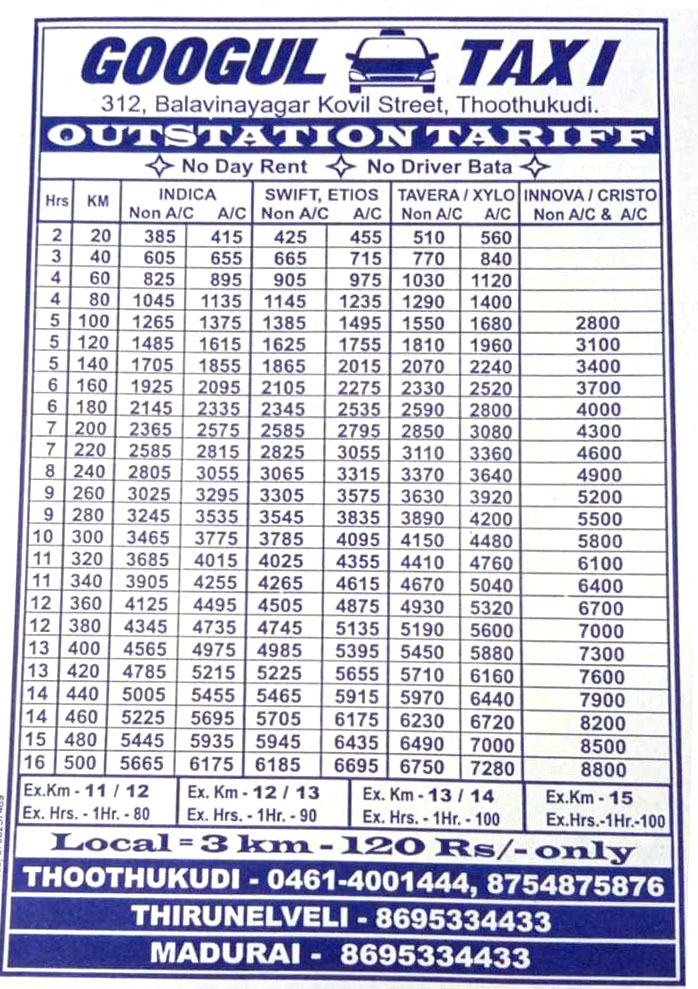 GOOGUL TAXI
312, Balavinayagar Kovil Street, Thoothukudi.
OUTSTATION TARIFF
No Day Rent No Driver Bata
Hrs KM INDICA SWIFT, ETIOS TAVERA / XYLO INNOVA / CRISTO
Non A/C A/C Non A/C A/C Non A/C A/C Non A/C & A/C
2 20 385 415 425 455 510 560
3 40 605 655 665 715 770 840
4 60 825 895 905 975 1030 1120
4 80 1045 1135 1145 1235 1290 1400
5 100 1265 1375 1385 1495 1550 1680 2800
5 120 1485 1615 1625 1755 1810 1960 3100
5 140 1705 1855 1865 2015 2070 2240 3400
6 160 1925 2095 2105 2275 2330 2520 3700
6 180 2145 2335 2345 2535 2590 2800 4000
7 200 2365 2575 2585 2795 2850 3080 4300
7 220 2585 2815 2825 3055 3110 3360 4600
8 240 2805 3055 3065 3315 3370 3640 4900
9 260 3025 3295 3305 3575 3630 3920 5200
9 280 3245 3535 3545 3835 3890 4200 5500
10 300 3465 3775 3785 4095 4150 4480 5800
11 320 3685 4015 4025 4355 4410 4760 6100
11 340 3905 4255 4265 4615 4670 5040 6400
12 360 4125 4495 4505 4875 4930 5320 6700
12 380 4345 4735 4745 5135 5190 5600 7000
13 400 4565 4975 4985 5395 5450 5880 7300
13 420 4785 5215 5225 5655 5710 6160 7600
14 440 5005 5455 5465 5915 5970 6440 7900
14 460 5225 5695 5705 6175 6230 6720 8200
15 480 5445 5935 5945 6435 6490 7000 8500
16 500 5665 6175 6185 6695 6750 7280 8800
Ex.Km - 11 / 12 Ex. Km - 12 / 13 Ex. Km - 13 / 14 Ex.Km - 15
Ex. Hrs. - 1Hr. - 80 Ex. Hrs. - 1Hr. - 90 Ex. Hrs. - 1Hr. - 100 Ex.Hrs.-1Hr.-100
Local = 3 km - 120 Rs/- only
THOOTHUKUDI - 0461-4001444, 8754875876
THIRUNELVELI - 8695334433
MADURAI - 8695334433